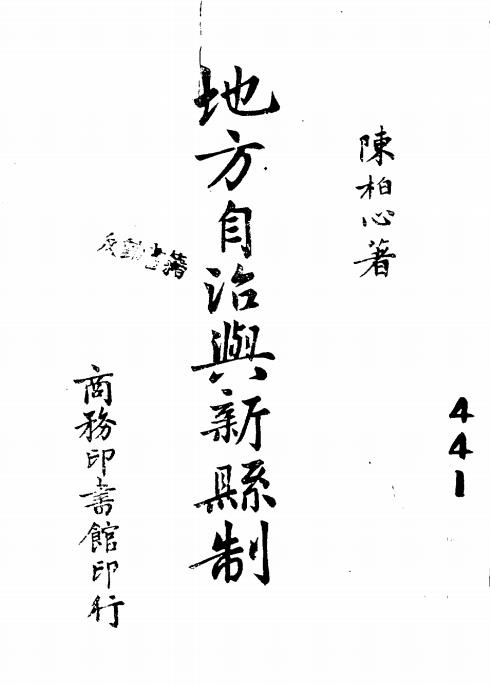 陳柏心著
地方自治與新縣制
反動書籍
商務印書館印行
441